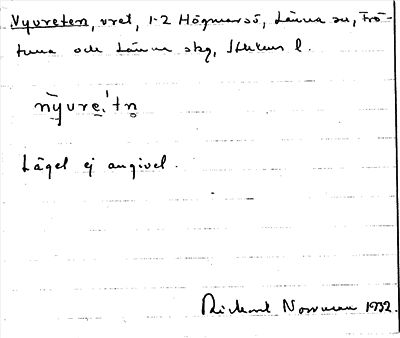 Nyvreten, vret, 1-2 Högmarsö, Länna sn, Frö-
tuna och Länna skg, Sthlms l.
nyvre.'tn
Läget ej angivet.
Rickard Norrman 1932.